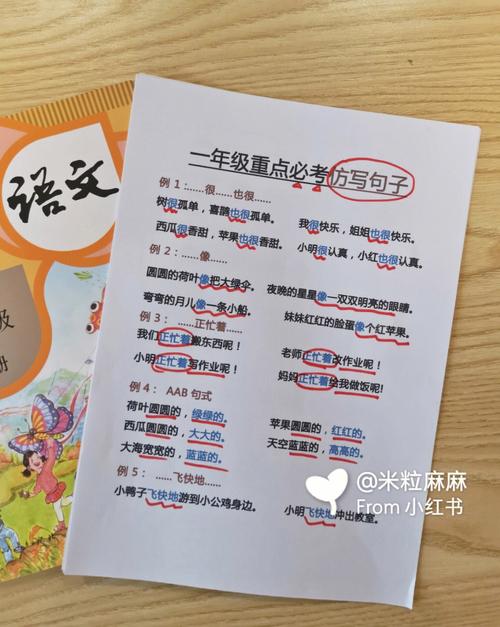 语文
级
册
一年级重点必考仿写句子
例 1:......很......也很......
树很孤单，喜鹊也很孤单。
我很快乐，姐姐也很快乐。
西瓜很香甜，苹果也很香甜。
小明很认真，小红也很认真。
例 2：......像......
圆圆的荷叶像把大绿伞。
夜晚的星星像一双双明亮的眼睛。
弯弯的月儿像一条小船。
妹妹红红的脸蛋像个红苹果。
例 3： ......正忙着......
我们正忙着搬东西呢！
老师正忙着改作业呢！
小明正忙着写作业呢！
妈妈正忙着给我做饭呢！
例 4： AAB 句式
荷叶圆圆的，绿绿的。
苹果圆圆的，红红的。
西瓜圆圆的，大大的。
天空蓝蓝的，高高的。
大海宽宽的，蓝蓝的。
例 5： ......飞快地......
小鸭子飞快地游到小公鸡身边。
小明飞快地冲出教室。
@米粒麻麻
From 小红书